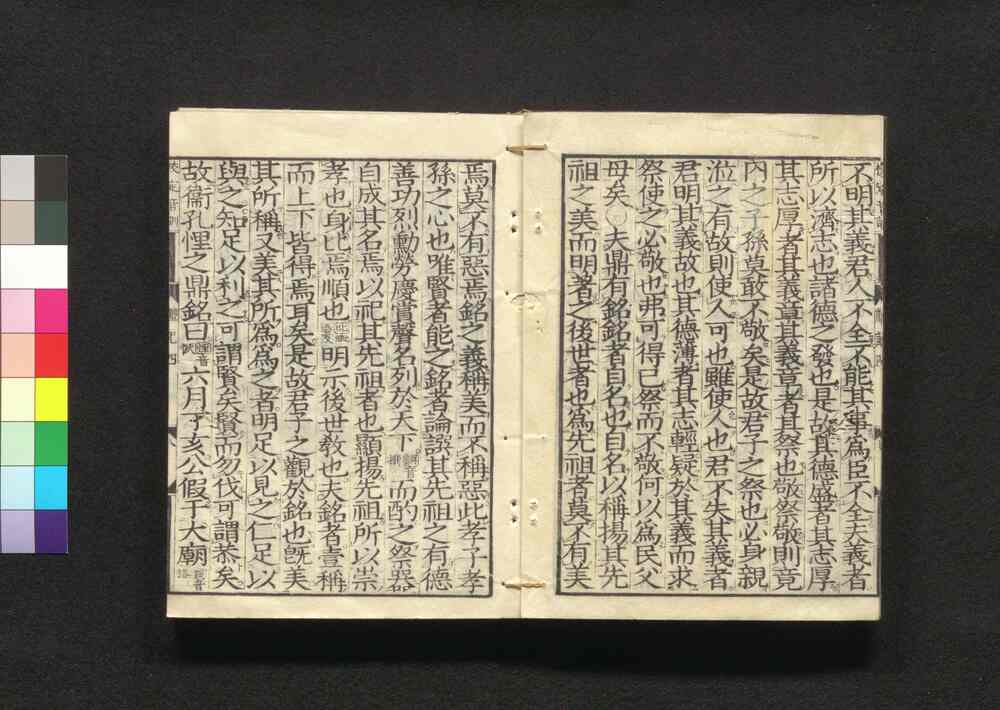 不明其義君人不全不能其事爲臣不全夫義者
所以濟志也諸德之發也是故其德盛者其志厚
其志厚者其義章其義章者其祭也敬祭敬則竟
內之子孫莫敢不敬矣是故君子之祭也必身親
涖之有故則使人可也雖使人也君不失其義者
君明其義故也其德薄者其志輕疑於其義而求
祭使之必敬也弗可得已祭而不敬何以爲民父
母矣○夫鼎有銘銘者自名也自名以稱揚其先
祖之美而明著之後世者也爲先祖者莫不有美
焉莫不有惡焉銘之義稱美而不稱惡此孝子孝
孫之心也唯賢者能之銘者論譔其先祖之有德
善功烈勳勞慶賞聲名列於天下而酌之祭器
自成其名焉以祀其先祖者也顯揚先祖所以崇
孝也身比焉順也明示後世敎也夫銘者壹稱
而上下皆得焉耳矣是故君子之觀於銘也旣美
其所稱又美其所爲爲之者明足以見之仁足以
與之知足以利之可謂賢矣賢而勿伐可謂恭矣
故衞孔悝之鼎銘曰六月丁亥公假于大廟